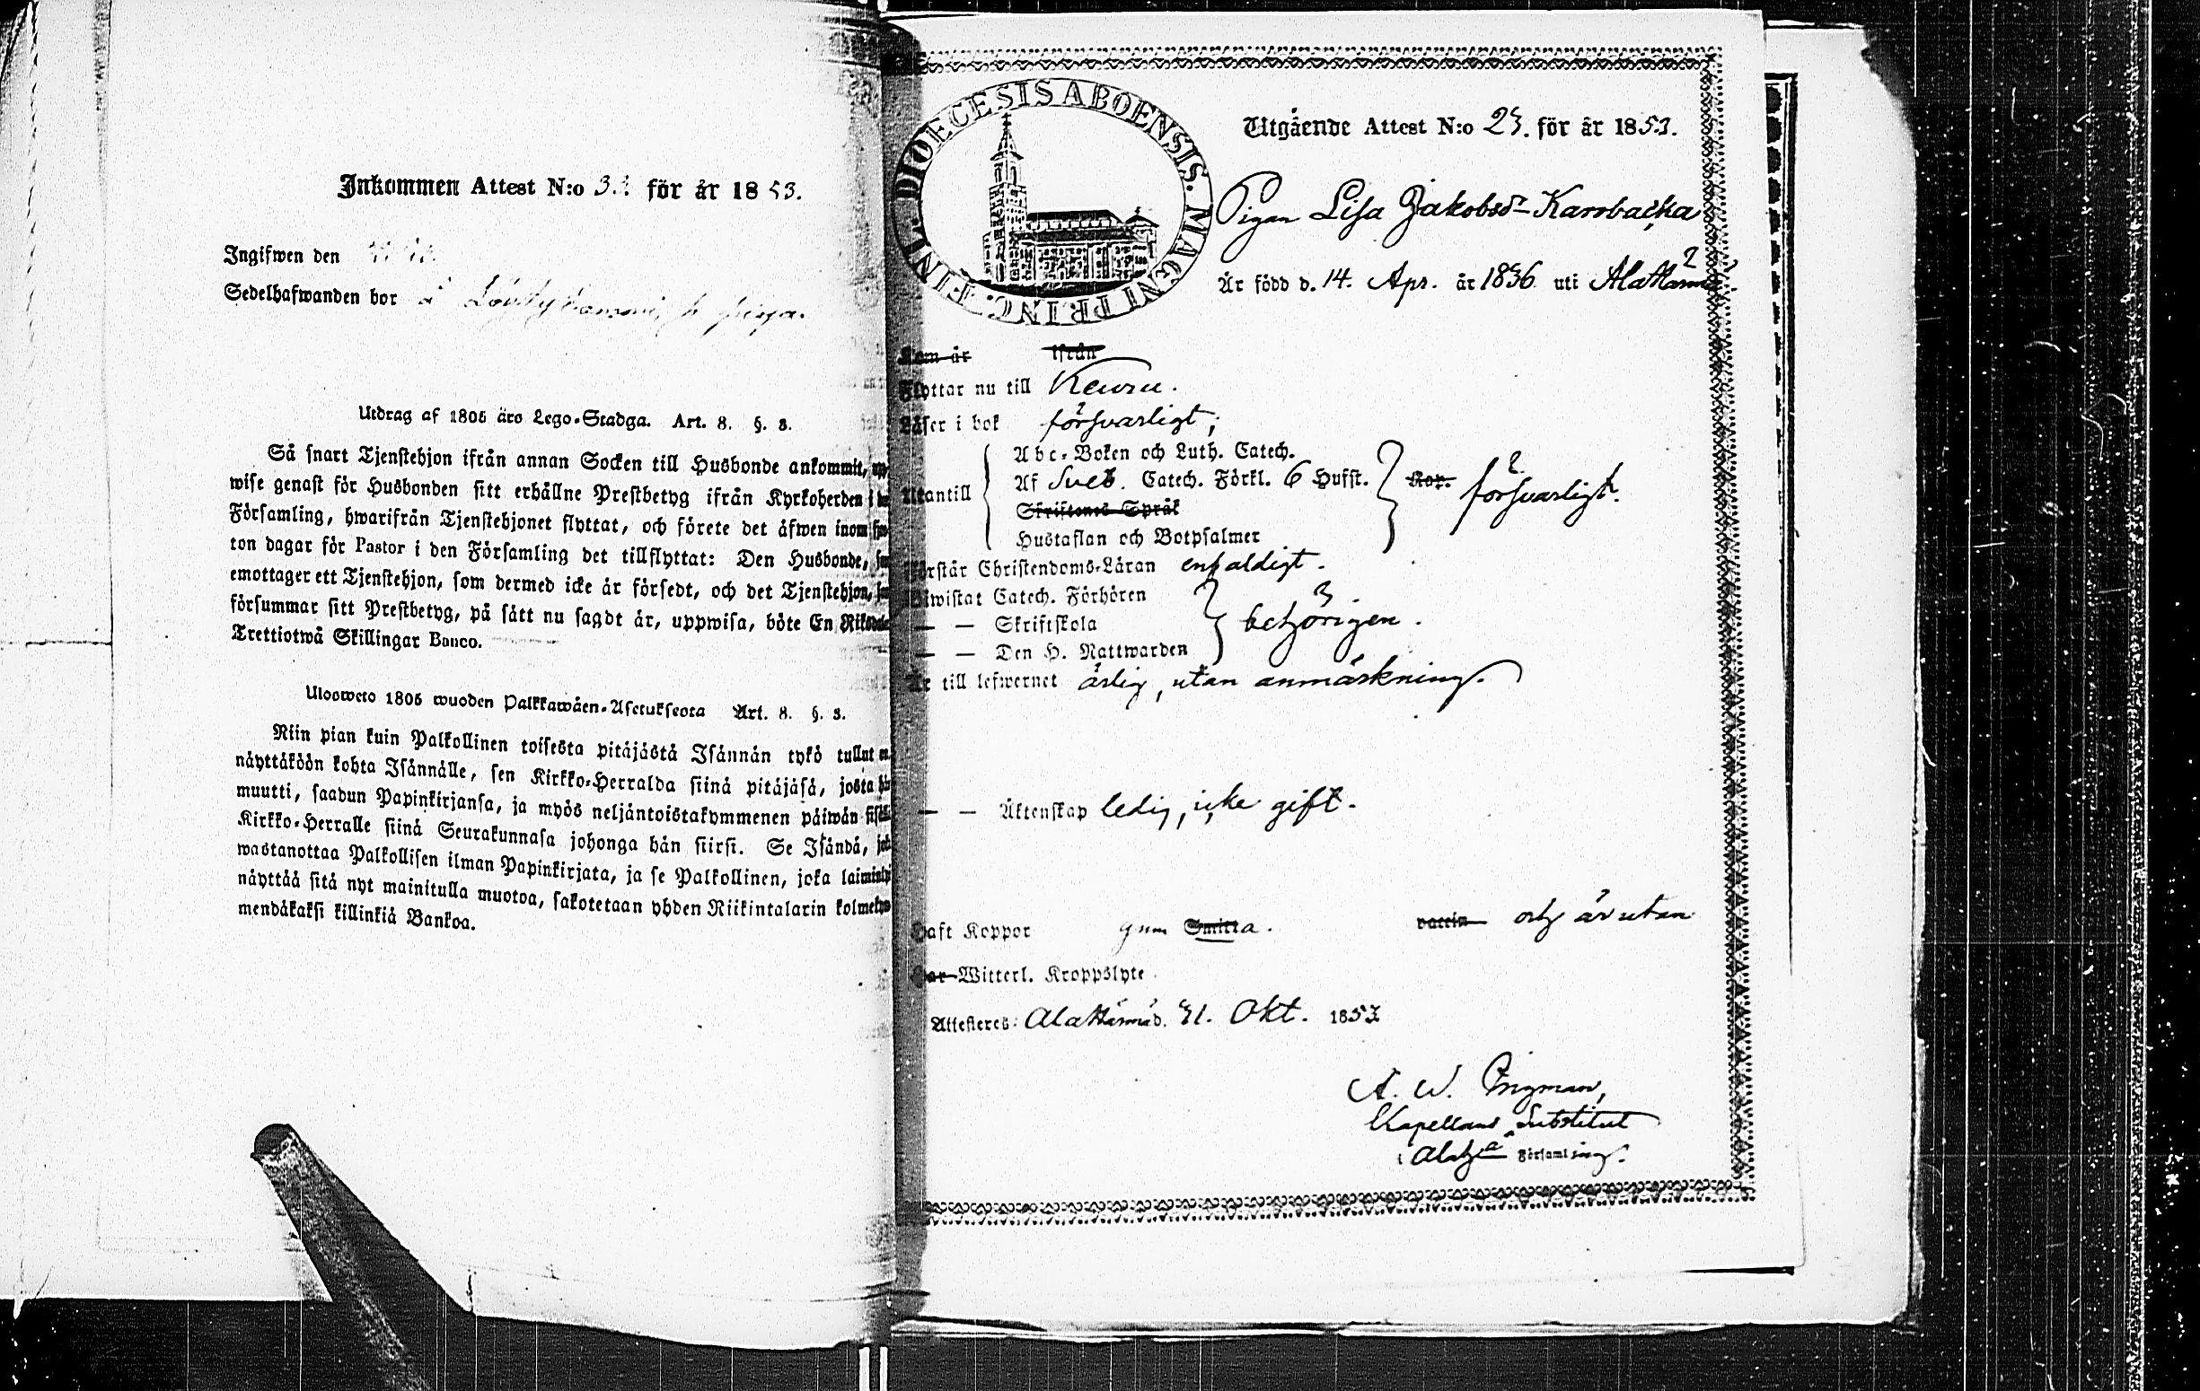 Inkommen Attest N:o 3 för år 1853.
Ingifwen den
Sedelhafwanden bor å
Utdrag af 1805 års Lego-Stadga. Art. 8. §. 3.
Så snart Tjenstehjon ifrån annan Socken till Husbonde ankommit,
wise genast för Husbonden sitt erhållne Prestbetyg ifrån Kyrkoherden i
Församling, hwarifrån Tjenstehjonet flyttat, och förete det äfwen inom
ton dagar för Pastor i den Församling det tillflyttat: Den Husbonde,
emottager ett Tjenstehjon, som dermed icke är försedt, och det Tjenstehjon,
försummar sitt Prestbetyg, på sätt nu sagdt är, uppwisa, böte En Riksdaler
Trettiotwå Skillingar Banco.
Ulosweto 1805 wuoden Palkkawäen-Asetuksesta Art. 8. §. 3.
Niin pian kuin Palkollinen toisesta pitäjästä Isännän tykö tullut
näyttäköön kohta Isännälle, sen Kirkko-Herralda siinä pitäjäsä, josta
muutti, saadun Papinkirjansa, ja myös neljäntoistakymmenen päiwän
Kirkko-Herralle siinä Seurakunnasa johonga hän siirsi. Se Isändä,
wastanottaa Palkollisen ilman Papinkirjata, ja se Palkollinen, joka
näyttää sitä nyt mainitulla muotoa, sakotetaan yhden Riikintalarin
mendäkaksi killinkiä Bankoa.
DIOECESIS ABOENSIS. MAGNI PRINC. FINL.
Utgående Attest N:o 23. för år 1853.
Pigan Lisa Jakobsdr Karrbacka
Är född d. 14. Apr. år 1836 uti AlaHärmä.
Kom år ifrån
Flyttar nu till Keuru.
Läser i bok försvarligt;
Abc-Boken och Luth. Catech.
Utantill Af Sveb. Catech. Förkl. 6 Hufst. försvarligt.
Skriftenes Språk
Hustaflan och Botpsalmer
Förstår Christendoms-Läran enfaldigt.
Biwistat Catech. Förhören
— — Skriftskola behörigen.
— — Den H. Nattwarden
Är till lefwernet ärlig, utan anmärkning.
— — Äktenskap ledig, icke gift.
Haft Koppor gnm Smitta. vaccin och är utan
Har Witterl. Kroppslyte
Attesteres: AlaHärmä d. 31. Okt. 1853
A. W.
Kapellans Substitut
i Församling.